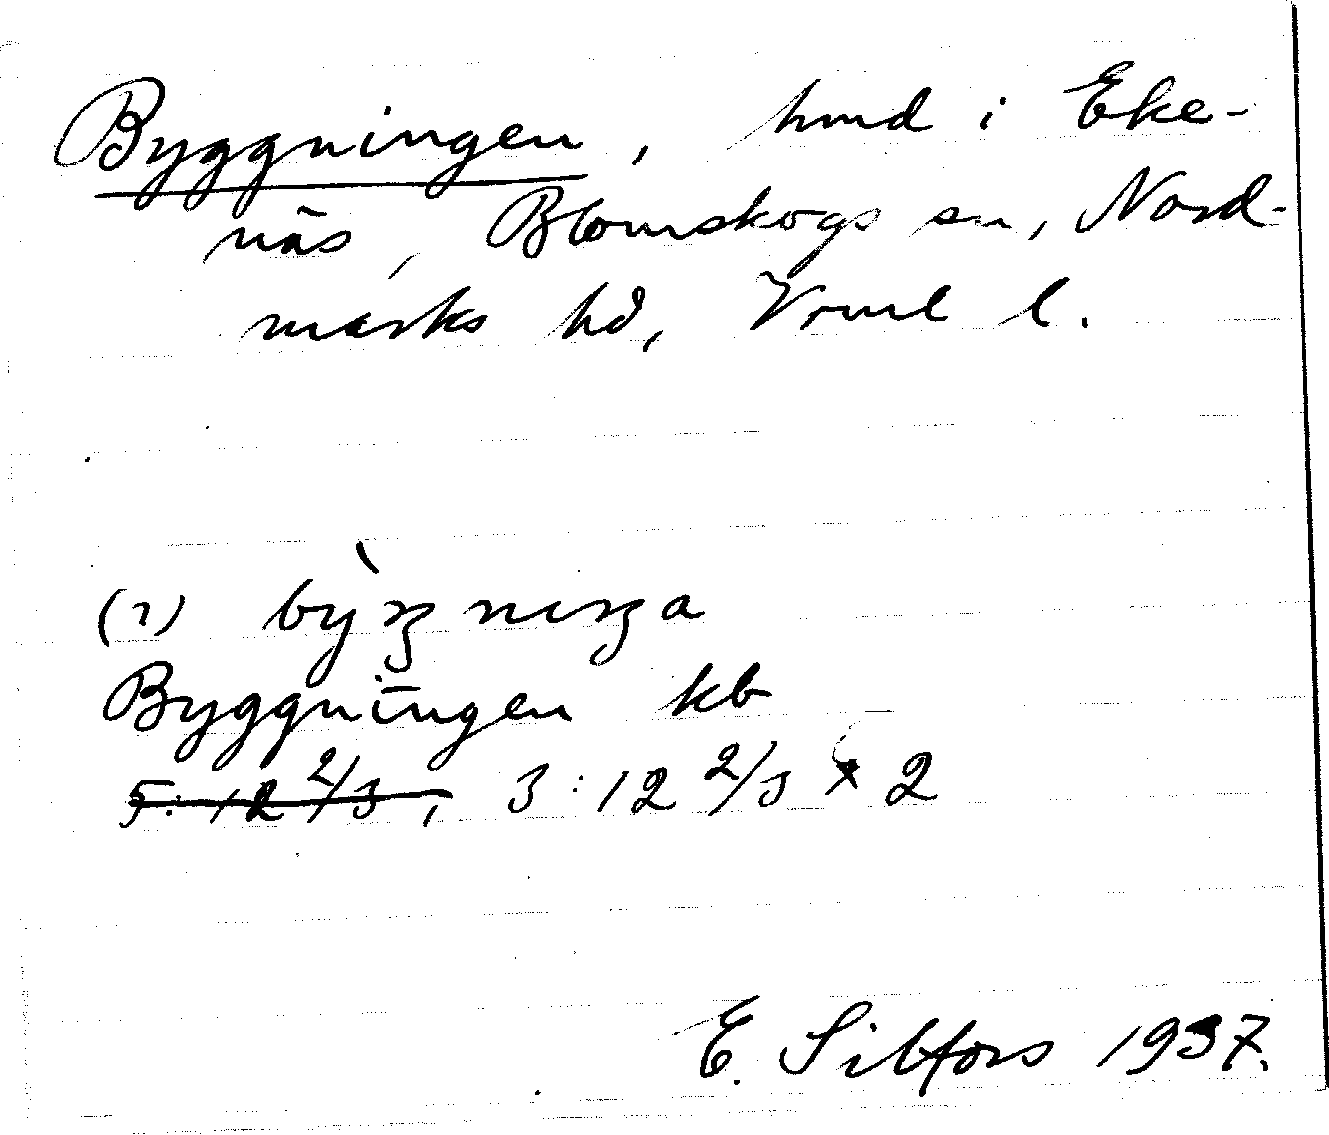 Byggningen, hmd i Eke-
näs, Blomskogs sn, Nord-
marks hd, Vrml l.
(1) by̌ŋniŋa
Byggningen kb
5:12 2/3, 3:12 2/3 x 2
E. Silfors 1937.